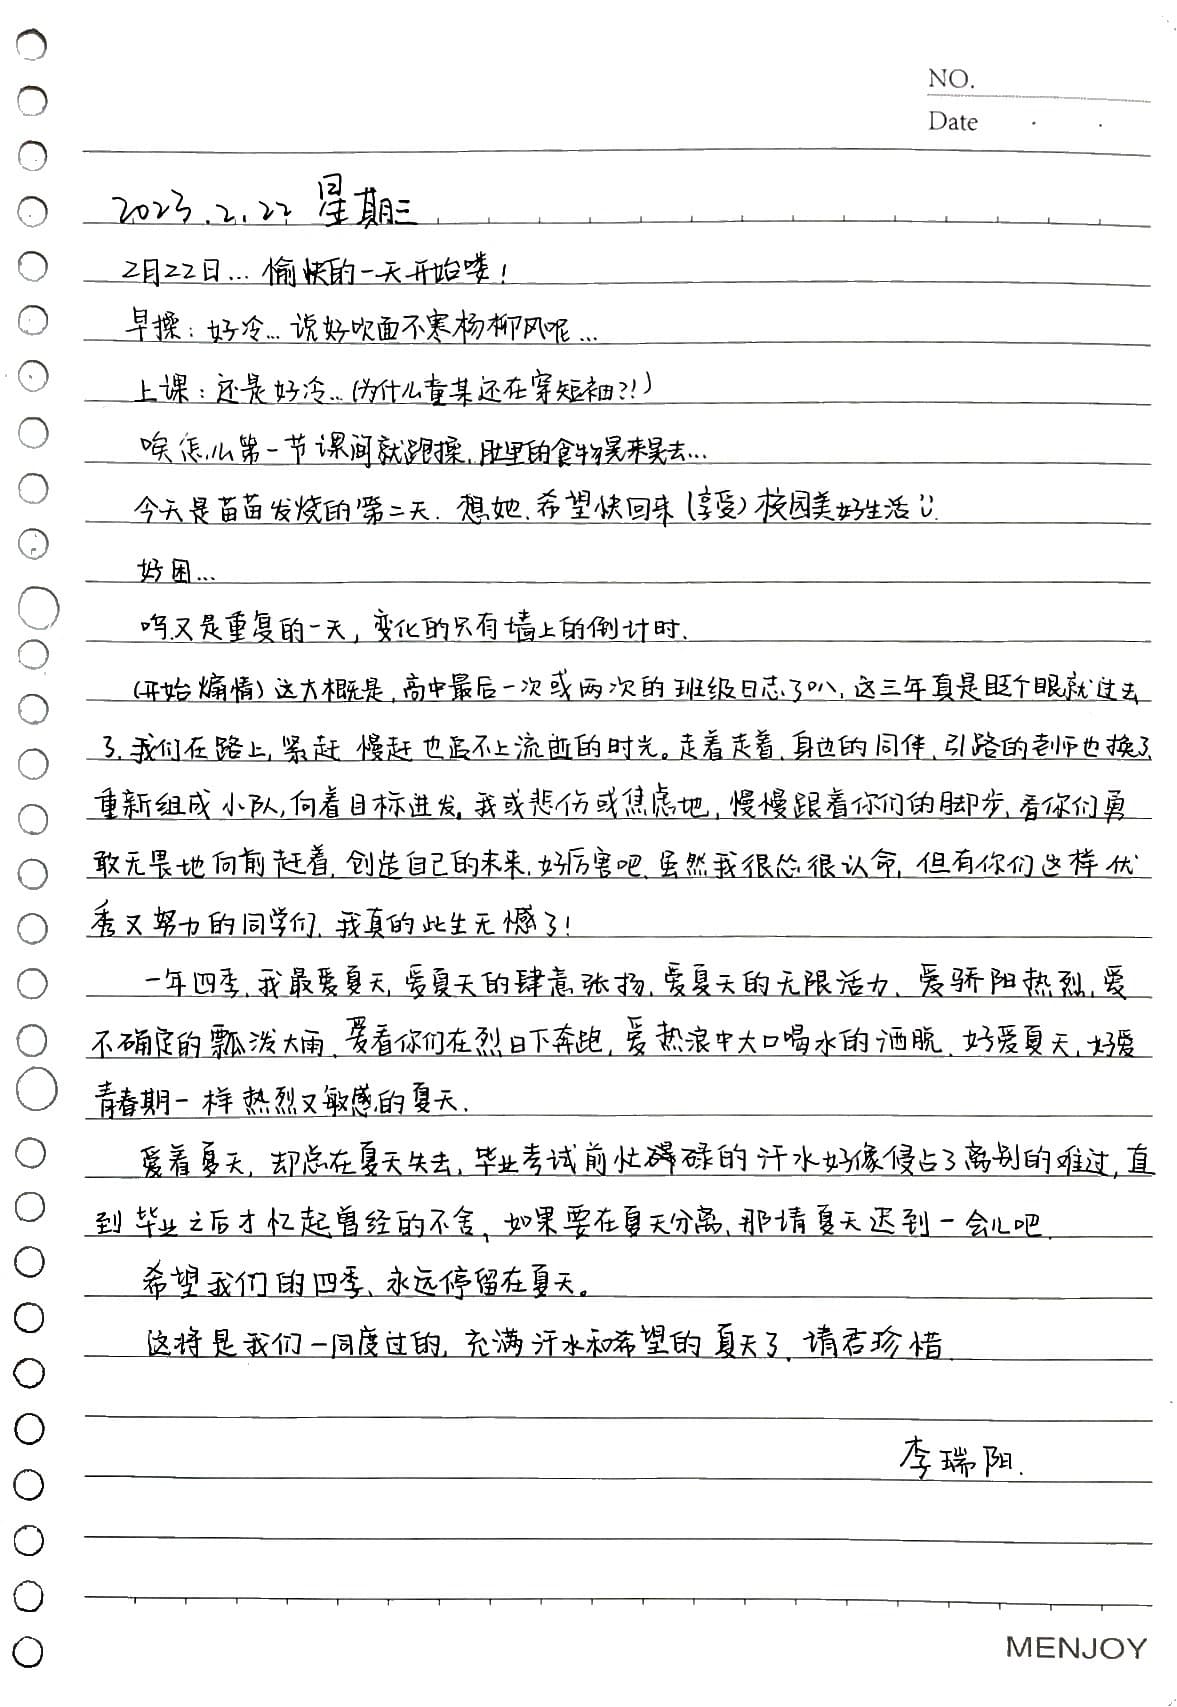 NO.
Date
2023.2.22 星期三
2月22日... 愉快的一天开始喽!
早操:好冷... 说好吹面不寒杨柳风呢...
上课:还是好冷...(为什么童某还在穿短袖?!)
唉怎么第一节课间就跑操,肚里的食物晃来晃去...
今天是苗苗发烧的第二天. 想她.希望快回来(享受)校园美好生活
好困...
呜又是重复的一天,变化的只有墙上的倒计时.
(开始煽情)这大概是,高中最后一次或两次的班级日志了叭、这三年真是眨个眼就过去
了.我们在路上,紧赶慢赶也追不上流逝的时光。走着走着.身边的同伴、引路的老师也换了
重新组成小队,向着目标进发,我或悲伤或焦虑地,慢慢跟着你们的脚步,看你们勇
敢无畏地向前赶着,创造自己的未来,好厉害吧、虽然我很怂很认命,但有你们这样优
秀又努力的同学们.我真的此生无憾了!
一年四季,我最爱夏天,爱夏天的肆意张扬,爱夏天的无限活力、爱骄阳热烈,爱
不确定的瓢泼大雨.爱看你们在烈日下奔跑,爱热浪中大口喝水的洒脱.好爱夏天,好爱
青春期一样热烈又敏感的夏天.
爱着夏天,却总在夏天失去.毕业考试前忙碌碌的汗水好像侵占了离别的难过,直
到毕业之后才忆起曾经的不舍,如果要在夏天分离、那请夏天迟到一会儿吧.
希望我们的四季、永远停留在夏天。
这将是我们一同度过的,充满汗水和希望的夏天了.请君珍惜
李瑞阳.
MENJOY